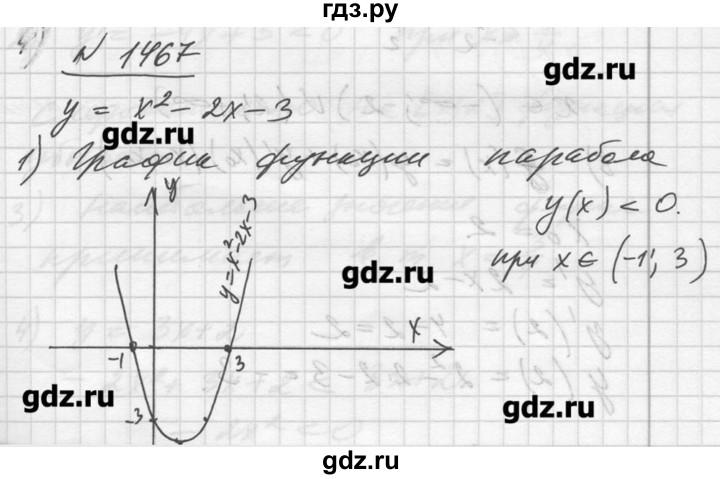 гдз.ру
N 1467
gdz.ru
y = x² - 2x - 3
gdz.ru
1) График функции парабола
y
y = x² - 2x - 3
y(x) < 0.
при x ∈ (-1; 3)
gdz.ru
x
-1
3
gdz.ru
-3
gdz.ru
gdz.ru